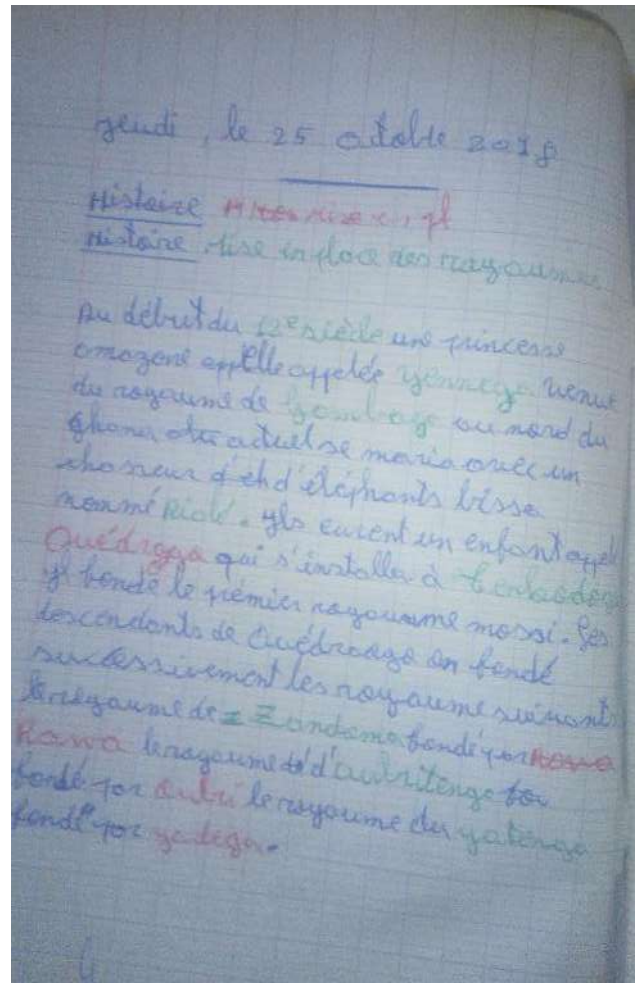 jeudi, le 25 octobre 2018
Histoire Mise en pl
Histoire Mise en place des royaumes
Au début du 12e siècle une princesse
amazone appelle appelée yennega venut
du royaume de Gambaga au nord du
ghana actuel se maria avec un
chasseur d'éh d'éléphants bissa
nommé Rialé. yls eurent un enfant appel
Ouédraga qui s'installa à Tenkodogo
yl fonde le prémier royaumme mossi. Ses
descendants de Ouédraogo on fondé
successivement les royaume suivants
le royaume de z Zandoma fondé par Rawa
Rawa le royaume d'oubritenga
fondé par oubri le royaume du yatenga
fondé par yadega.